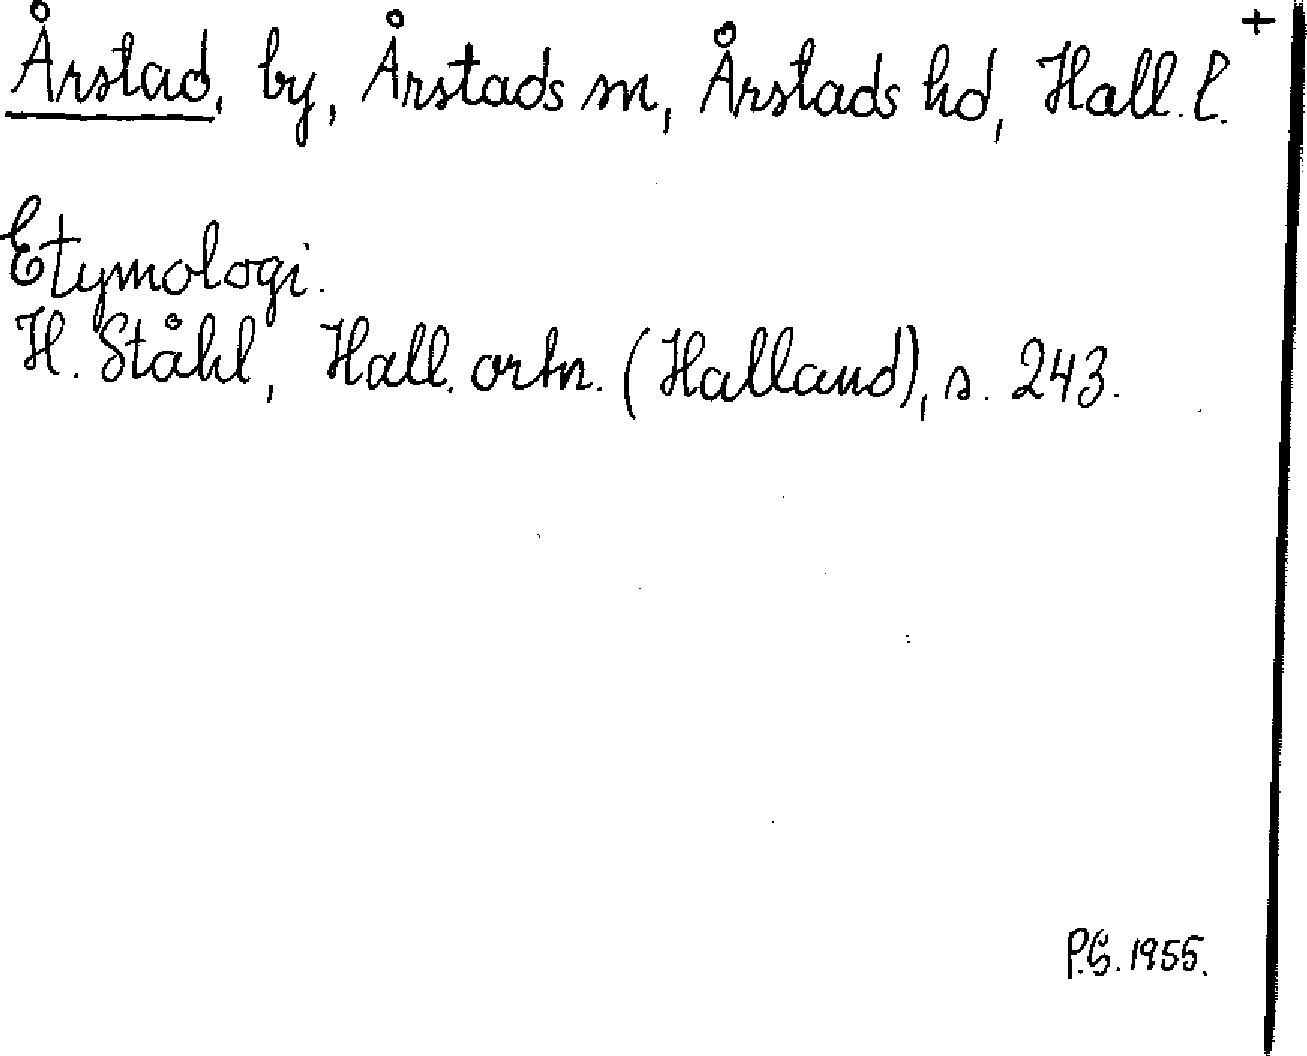 Årstad, by, Årstads sn, Årstads hd, Hall. l. +
Etymologi.
H. Ståhl, Hall. ortn. (Halland), s. 243.
P.G. 1955.